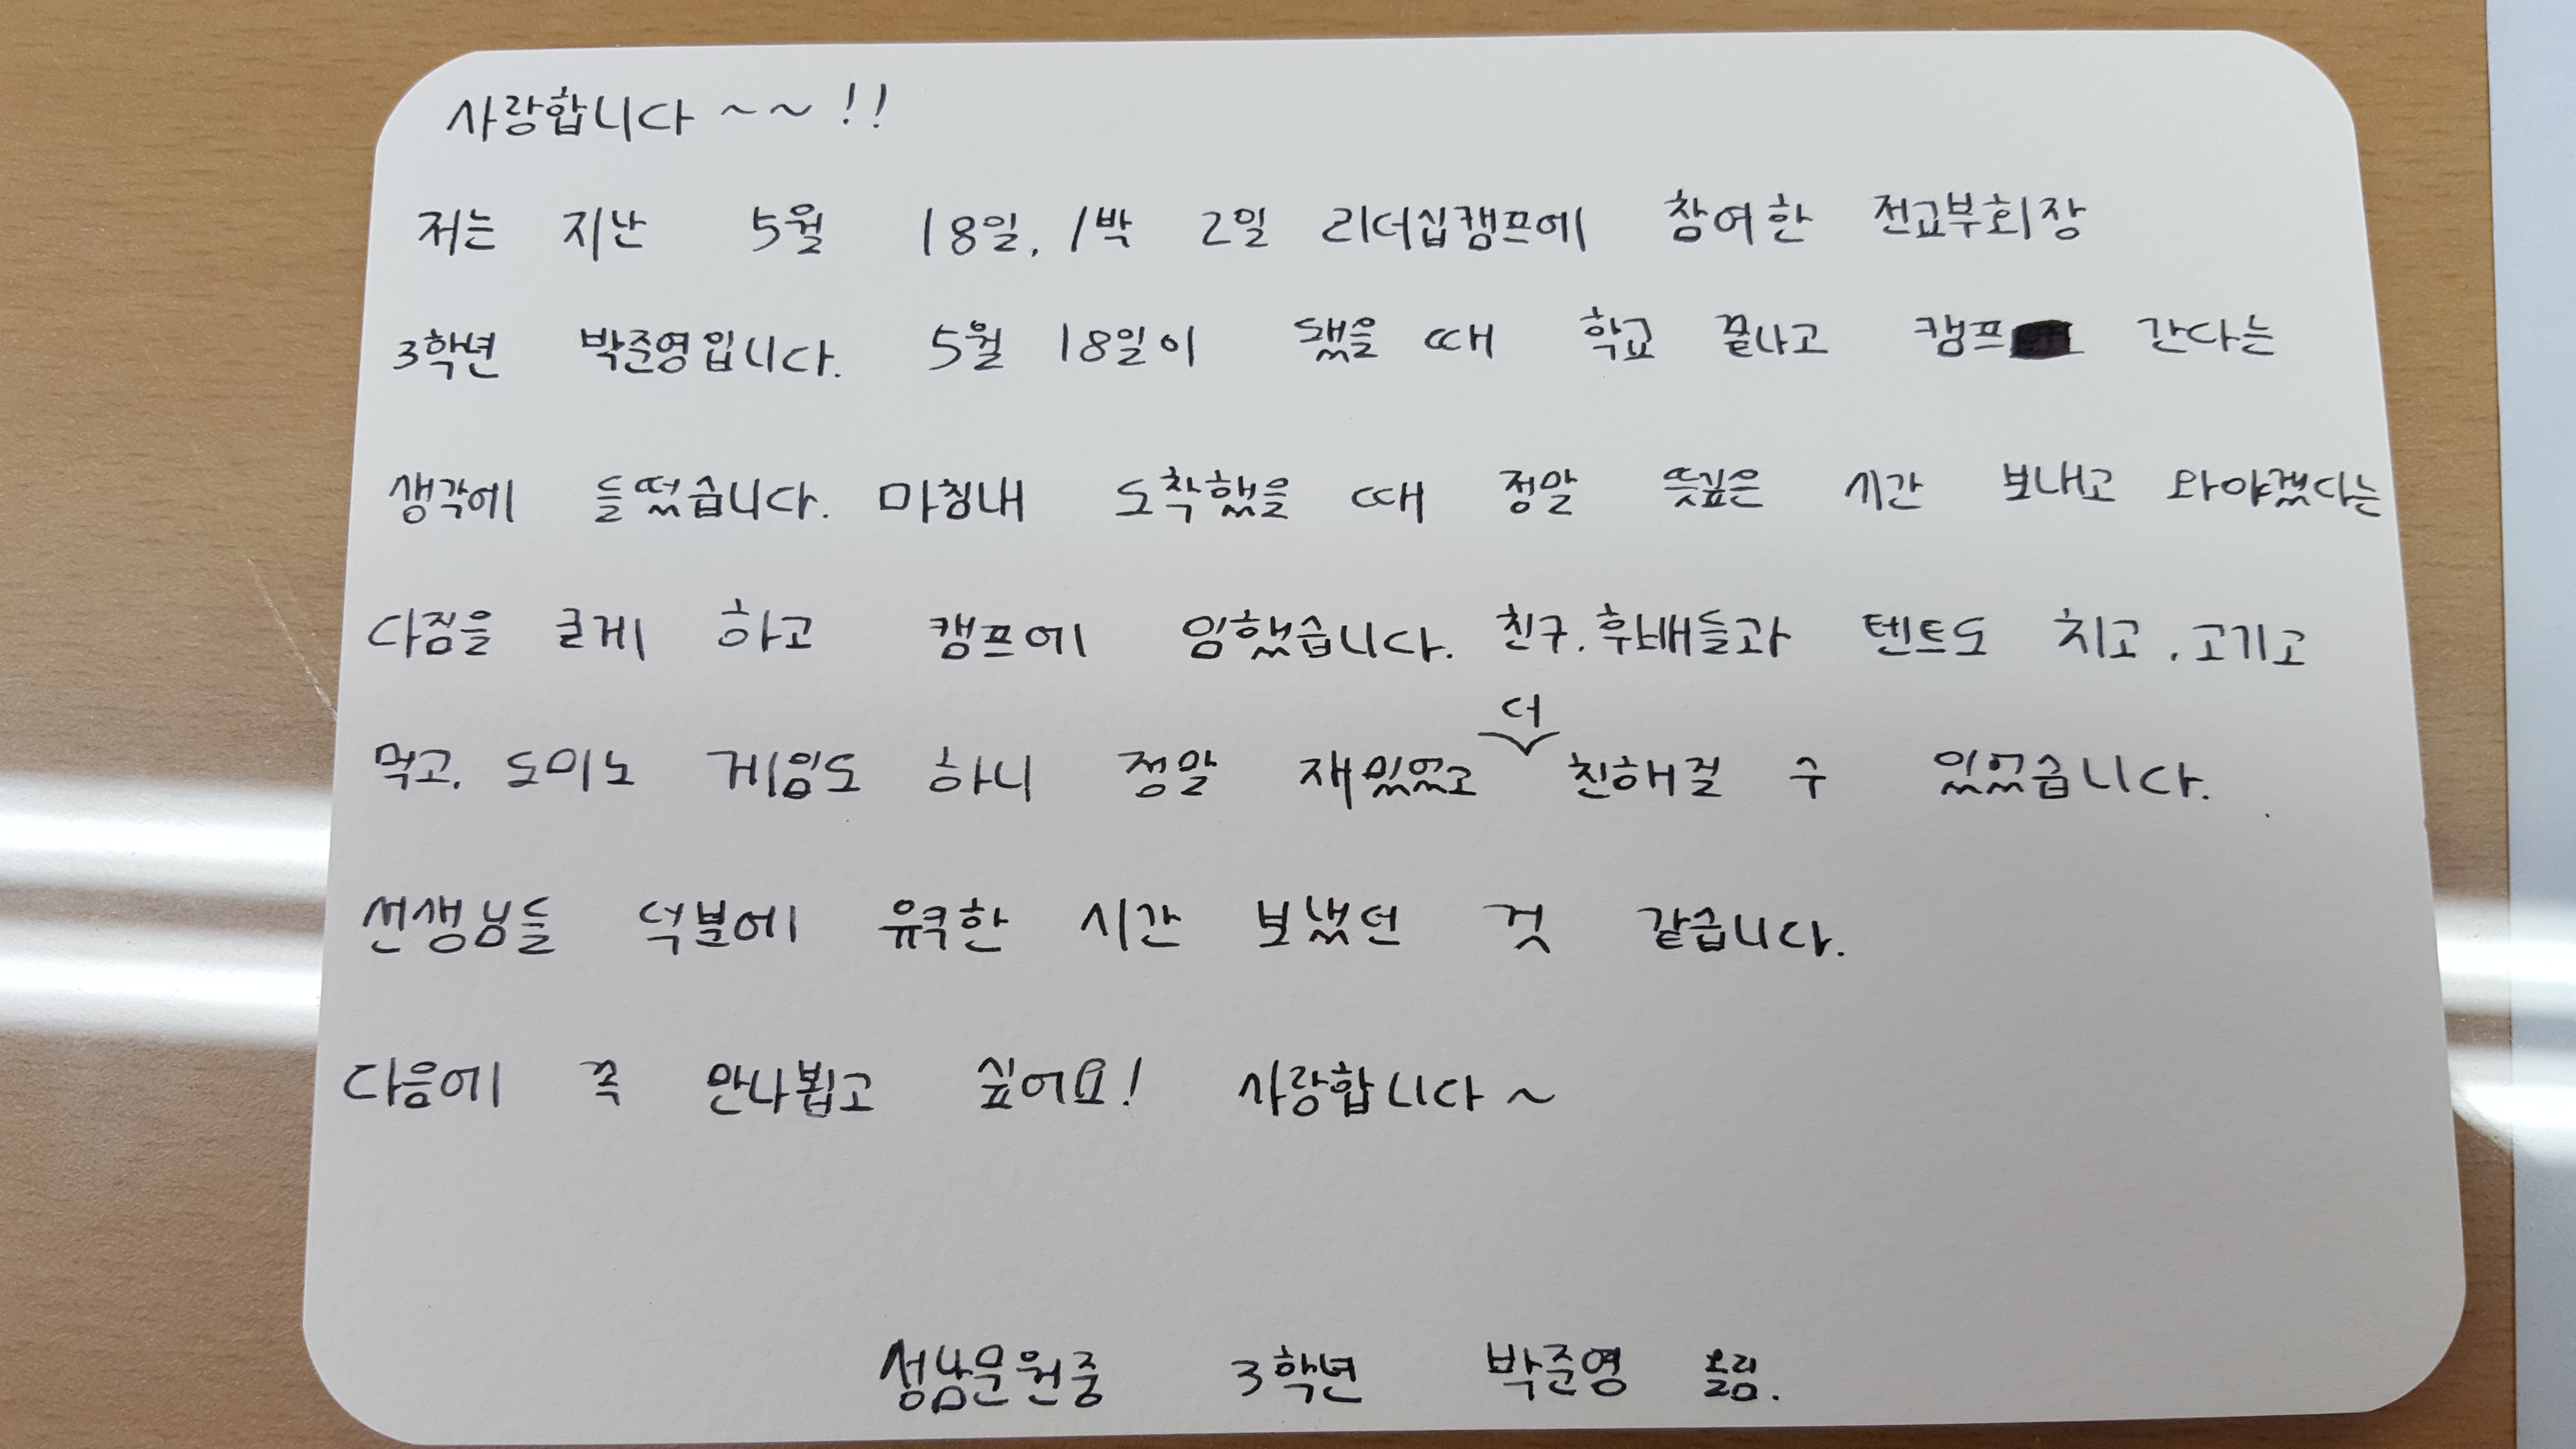 사랑합니다 ~~!!
저는 지난 5월 18일, 1박 2일 리더십캠프에 참여한 전교부회장
3학년 박준영입니다. 5월 18일이 됐을 때 학교 끝나고 캠프 간다는
생각에 들떴습니다. 마침내 도착했을 때 정말 뜻깊은 시간 보내고 와야겠다는
다짐을 크게 하고 캠프에 임했습니다. 친구, 후배들과 텐트도 치고, 고기고
먹고, 도미노 게임도 하니 정말 재밌었고 더 친해질 수 있었습니다.
선생님들 덕분에 유쾌한 시간 보냈던 것 같습니다.
다음에 꼭 만나뵙고 싶어요! 사랑합니다~
성남문원중 3학년 박준영 올림.